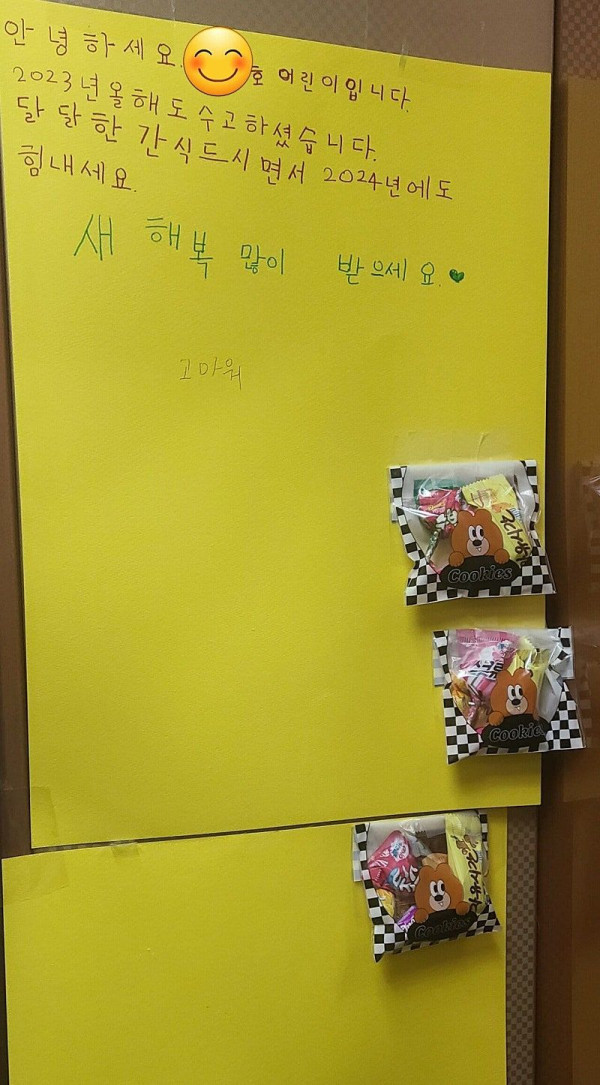 안녕하세요. 호 어린이입니다.
2023년올해도 수고하셨습니다.
달달한 간식드시면서 2024년에도
힘내세요.
새 해복 많이 받으세요.♥
고마워
Cookies
Cookie
Cookies